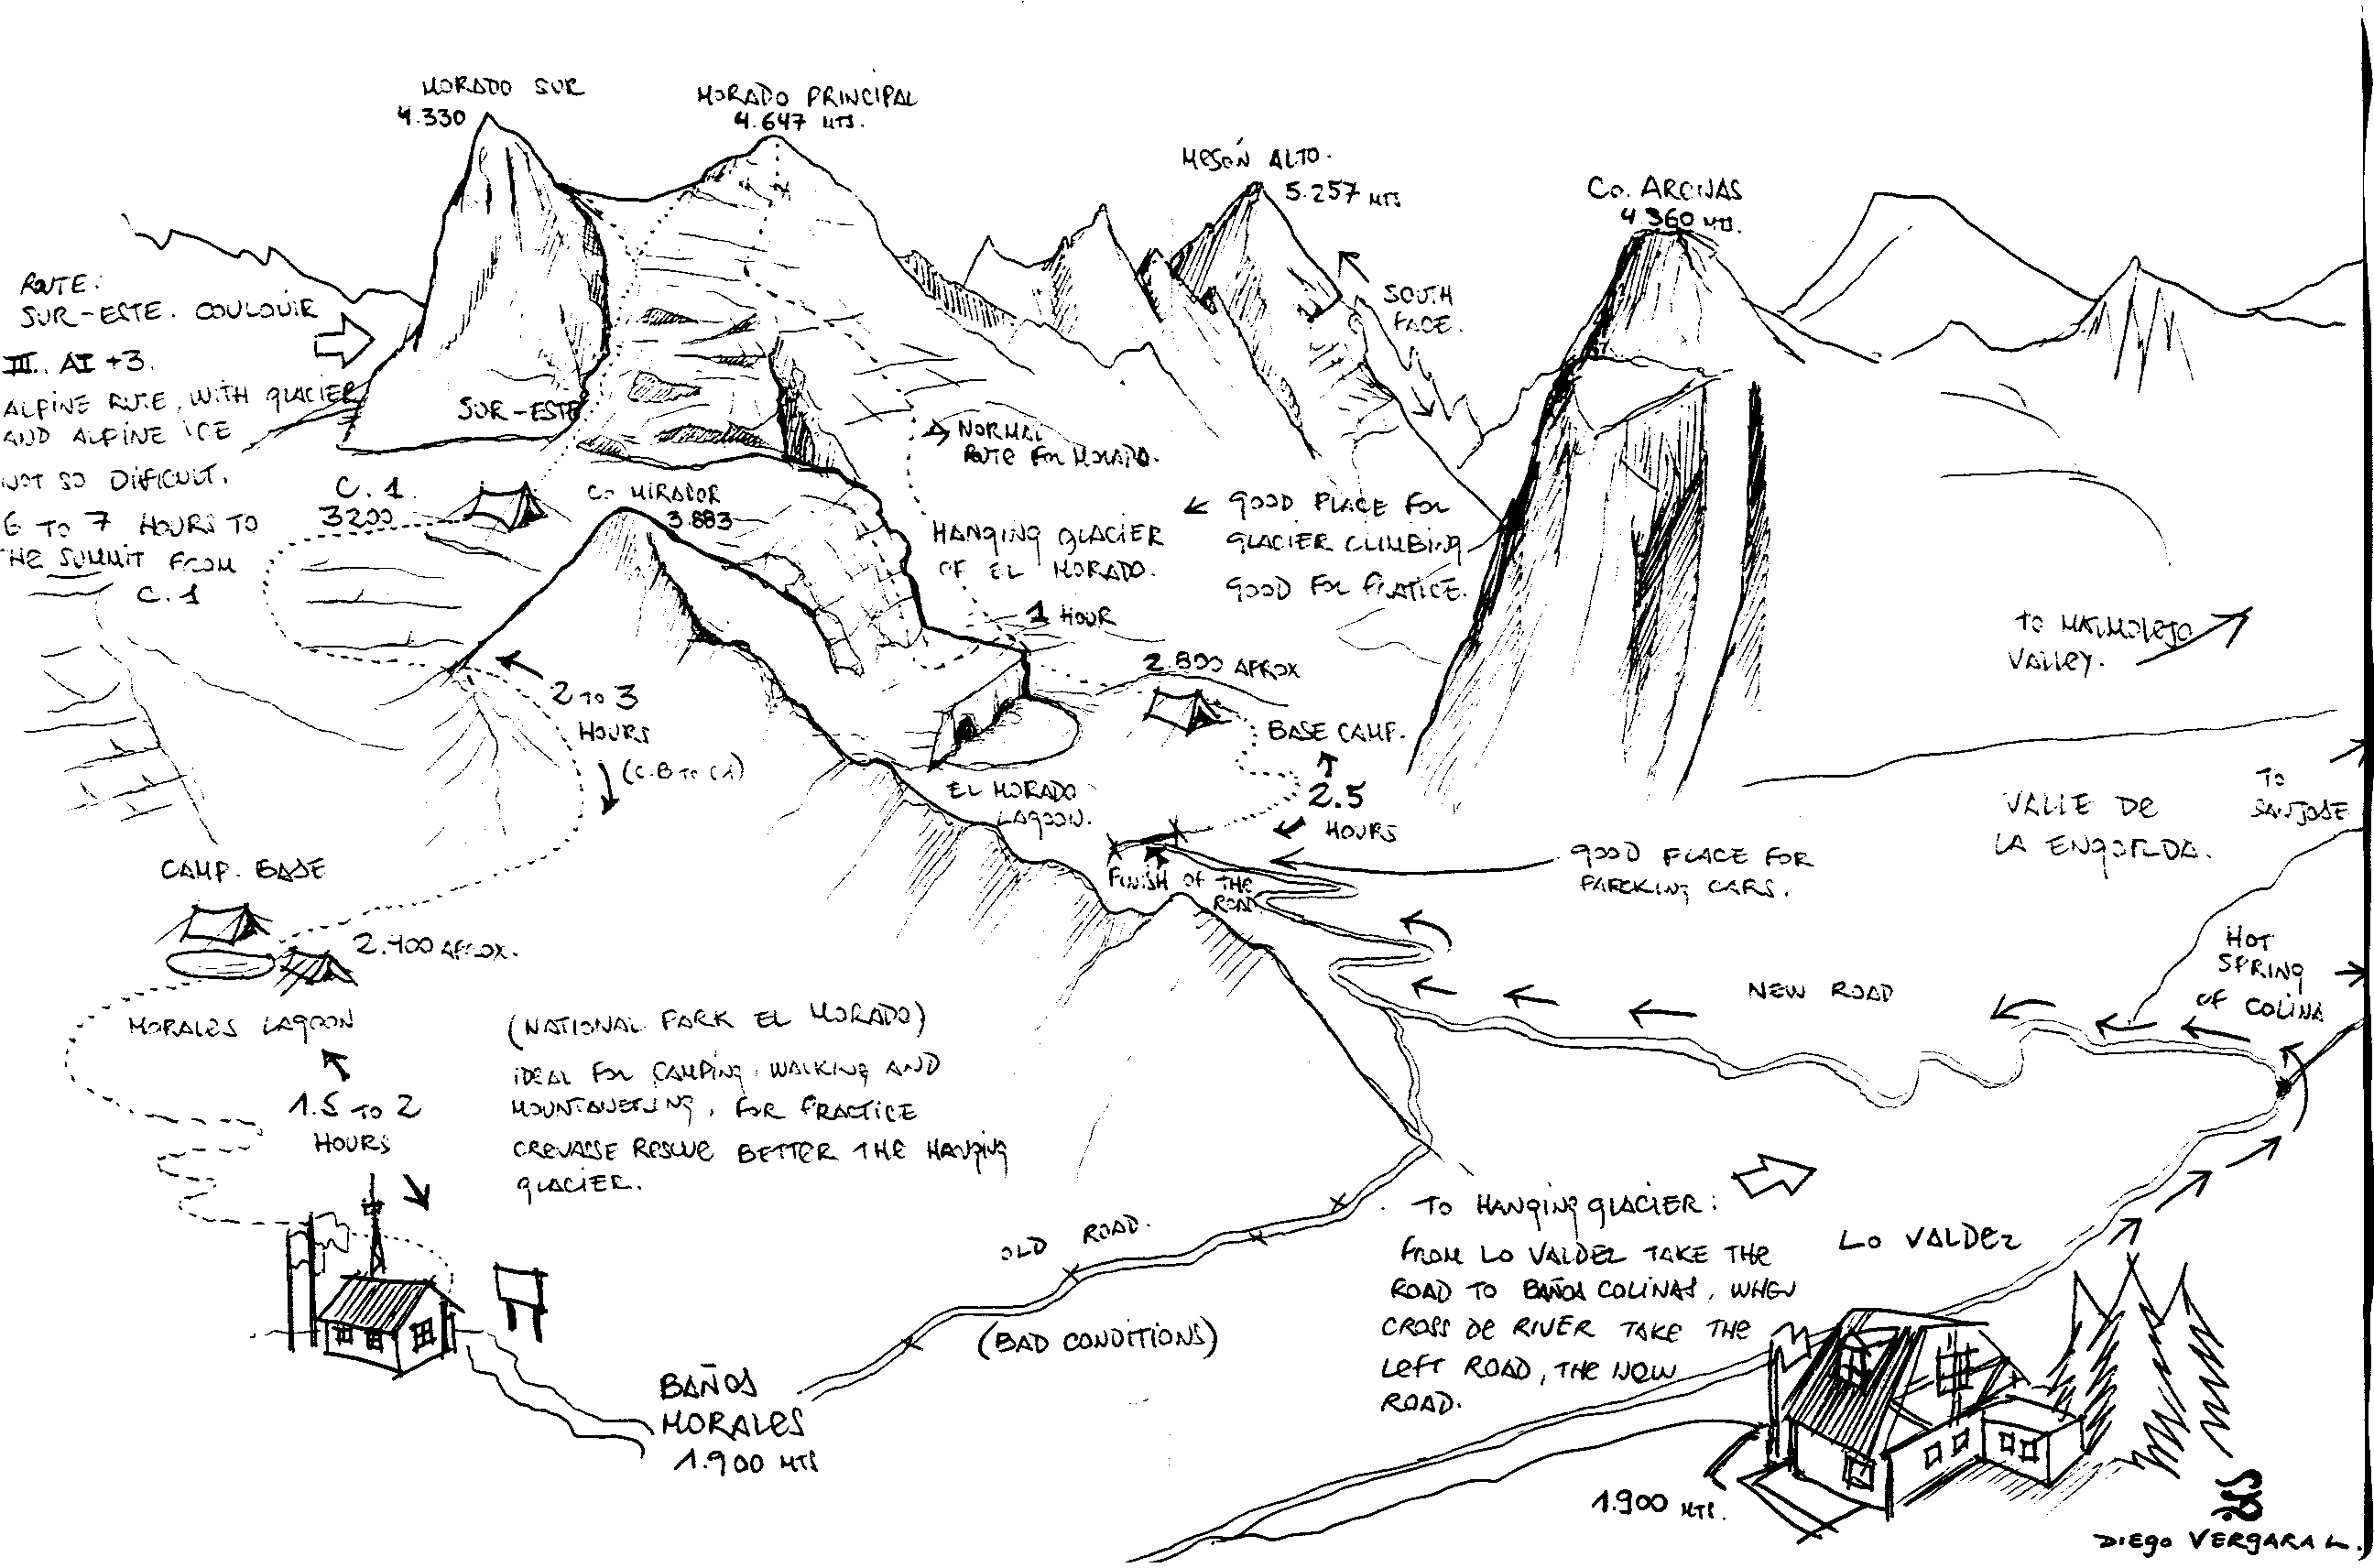 MORADO SUR
4.330
MORADO PRINCIPAL
4.647 MTS.
MESÓN ALTO.
5.257 MTS
Co. ARENAS
4.360 MTS.
SOUTH
FACE.
ROUTE:
SUR-ESTE. COULOUIR
III. AI +3.
ALPINE RUTE, WITH GLACIER
AND ALPINE ICE
NOT SO DIFICULT.
6 TO 7 HOURS TO
THE SUMMIT FROM
C.1
SUR-ESTE
C.1.
3200
Co MIRADOR
3.883
NORMAL
ROUTE FOR MORADO.
HANGING GLACIER
OF EL MORADO.
GOOD PLACE FOR
GLACIER CLIMBING
GOOD FOR PRATICE.
1 HOUR
2.800 APROX
BASE CAMP.
2.5
HOURS
TO MARMOLEJO
VALLEY.
2 TO 3
HOURS
(C.B TO C1)
EL MORADO
LAGOON.
FINISH OF THE
ROAD
GOOD PLACE FOR
PARCKING CARS.
VALLE DE
LA ENGORDA.
TO
SANJOSE
HOT
SPRING
OF COLINA
NEW ROAD
CAMP. BASE
2.400 APROX.
MORALES LAGOON
1.5 TO 2
HOURS
(NATIONAL PARK EL MORADO)
IDEAL FOR CAMPING, WALKING AND
MOUNTANEERING, FOR PRACTICE
CREVASSE RESCUE BETTER THE HANGING
GLACIER.
OLD ROAD.
(BAD CONDITIONS)
BAÑOS
MORALES
1.900 MTS
TO HANGING GLACIER:
FROM LO VALDEZ TAKE THE
ROAD TO BAÑOS COLINAS, WHEN
CROSS DE RIVER TAKE THE
LEFT ROAD, THE NEW
ROAD.
LO VALDEZ
1.900 MTS.
DIEGO VERGARA L.